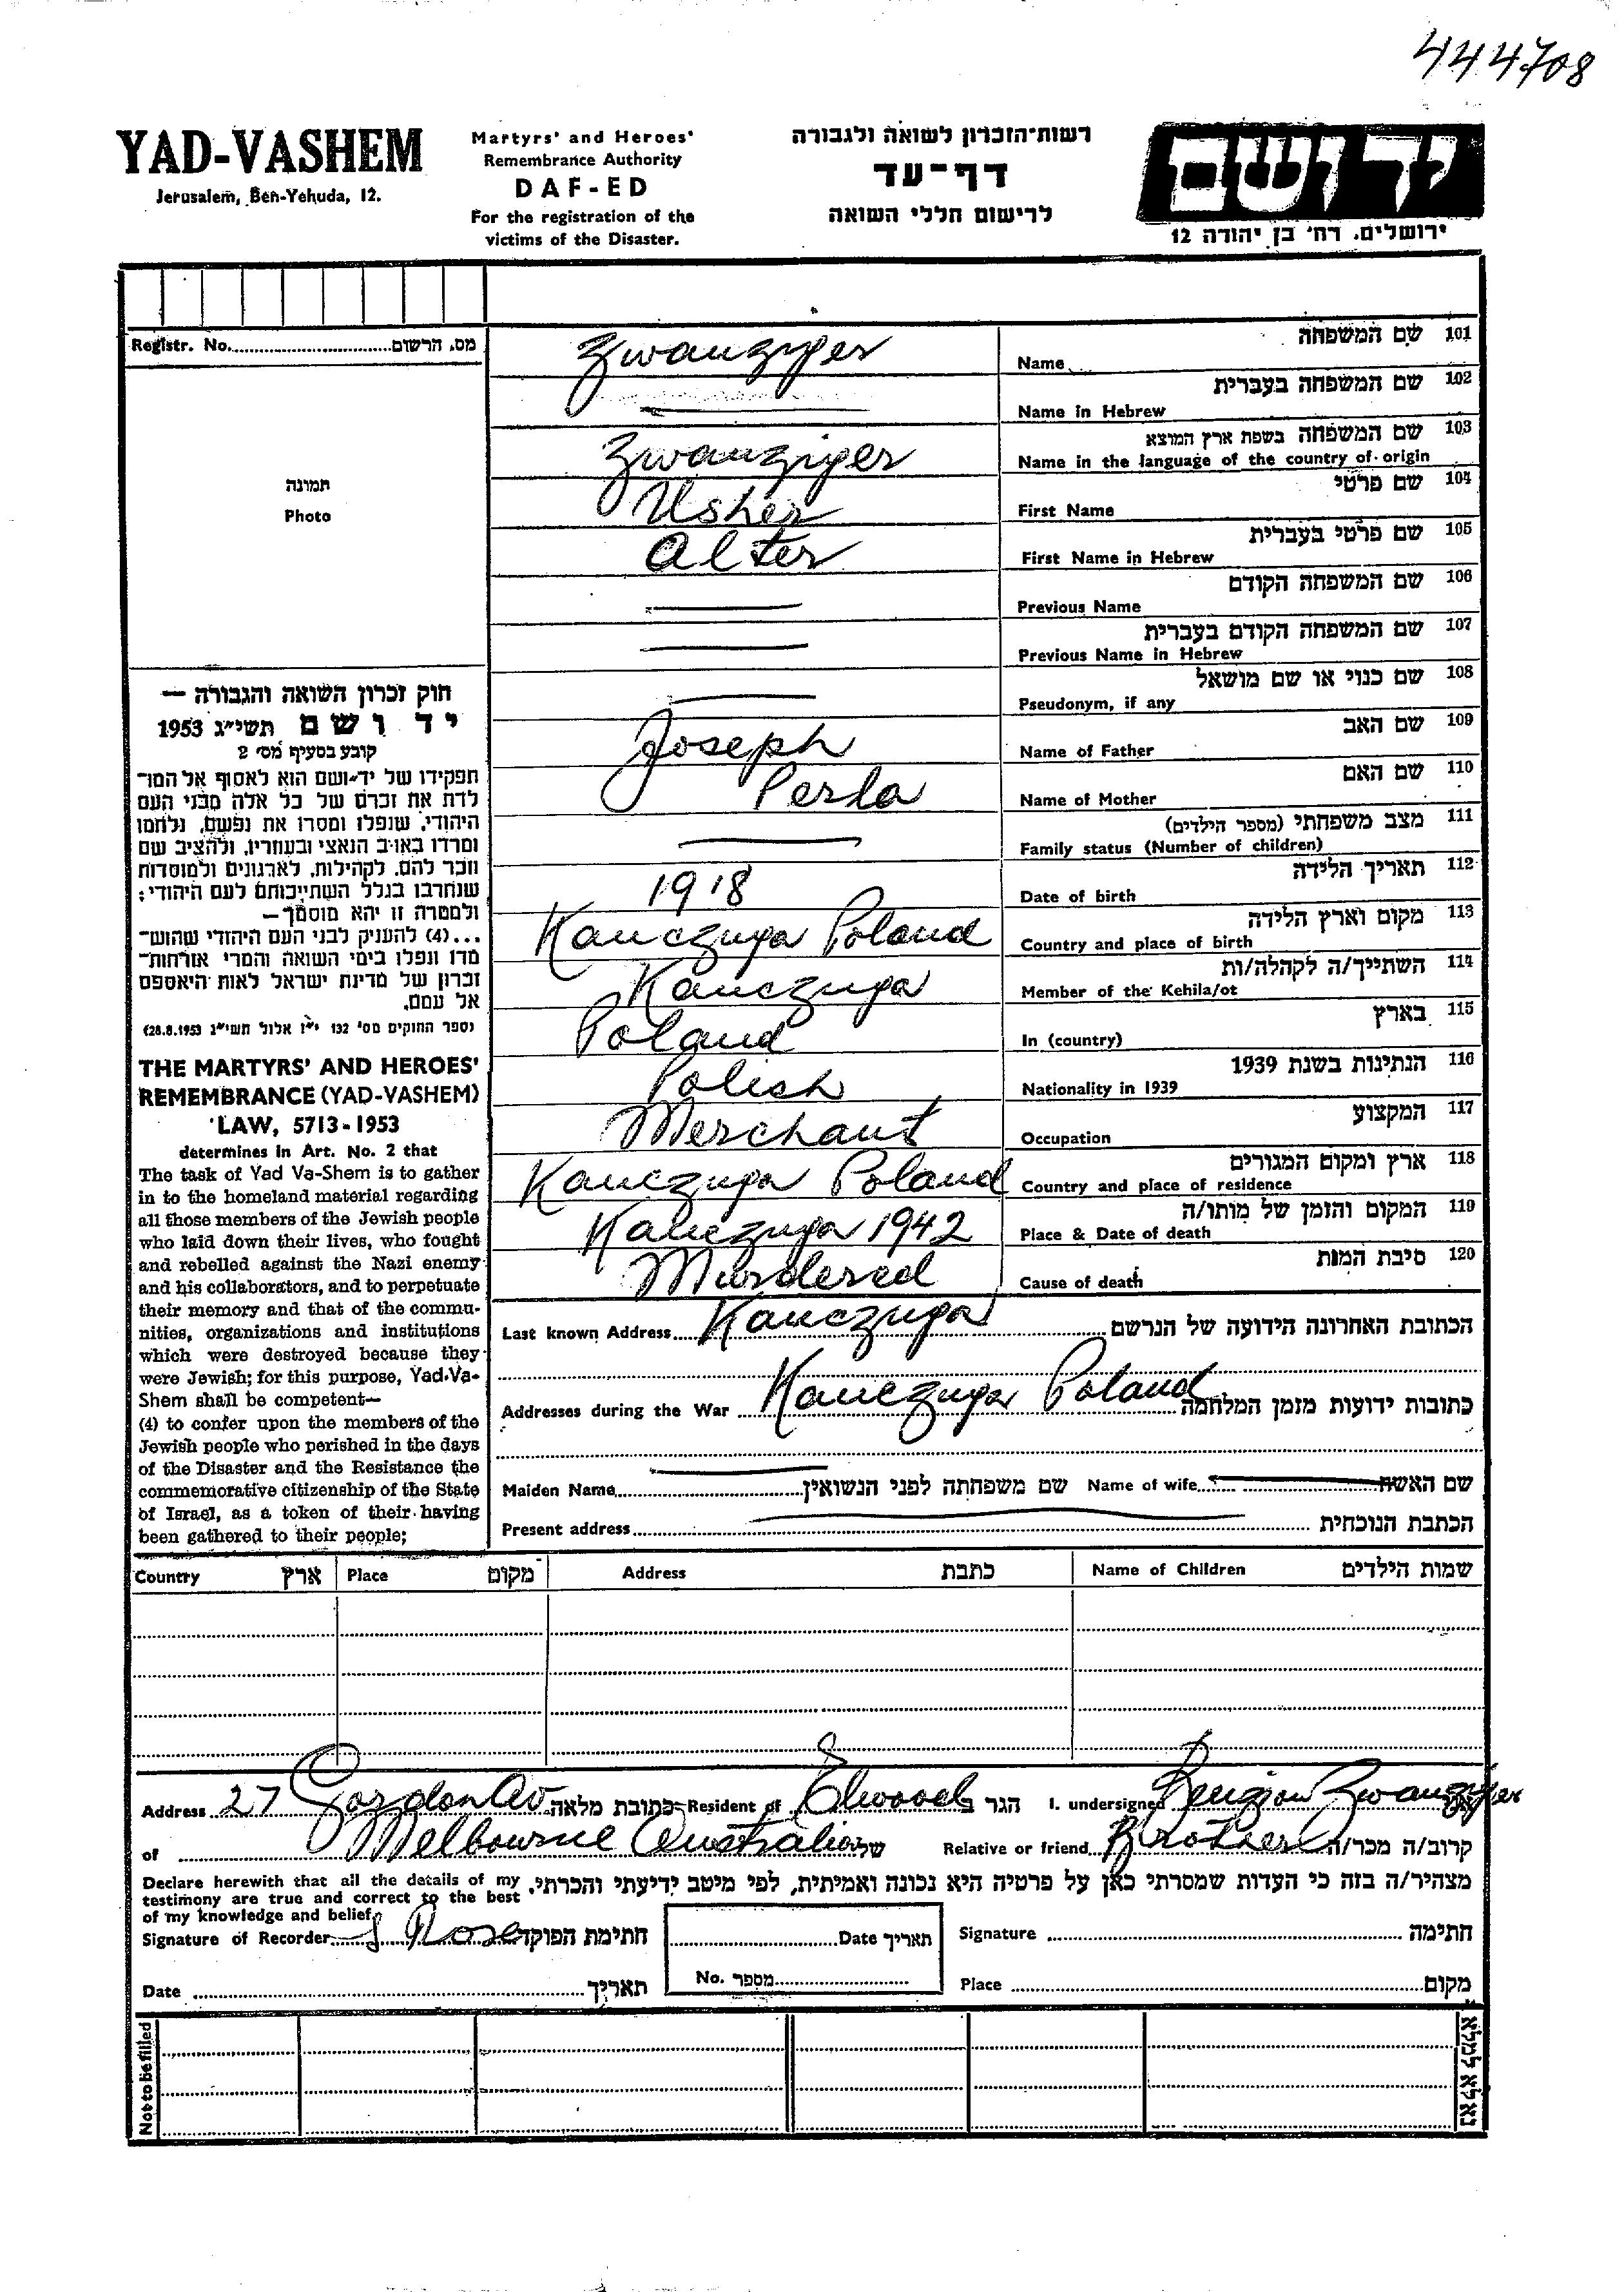 444708
YAD-VASHEM
Jerusalem, Ben-Yehuda, 12.
Martyrs' and Heroes'
Remembrance Authority
DAF-ED
For the registration of the
victims of the Disaster.
רשות־הזכרון לשואה ולגבורה
דף־עד
לרישום חללי השואה
ידושם
ירושלים. רח' בן יהודה 12
Registr. No. מס. הרשום
תמונה
Photo
חוק זכרון השואה והגבורה —
יד ושם תשי״ג 1953
קובע בסעיף מס' 2
תפקידו של יד-ושם הוא לאסוף אל המו־
לדת את זכרם של כל אלה מבני העם
היהודי, שנפלו ומסרו את נפשם, נלחמו
ומרדו באויב הנאצי ובעוזריו, ולהציב שם
וזכר להם, לקהילות, לארגונים ולמוסדות
שנחרבו בגלל השתייכותם לעם היהודי;
ולמטרה זו יהא מוסמך —
...(4) להעניק לבני העם היהודי שהוש־
מדו ונפלו בימי השואה והמרי אזרחות־
זכרון של מדינת ישראל לאות היאספם
אל עמם.
(ספר החוקים מס' 132 י״ז אלול תשי״ג 28.8.1953)
THE MARTYRS' AND HEROES'
REMEMBRANCE (YAD-VASHEM)
LAW, 5713-1953
determines in Art. No. 2 that
The task of Yad Va-Shem is to gather
in to the homeland material regarding
all those members of the Jewish people
who laid down their lives, who fought
and rebelled against the Nazi enemy
and his collaborators, and to perpetuate
their memory and that of the commu-
nities, organizations and institutions
which were destroyed because they
were Jewish; for this purpose, Yad-Va-
Shem shall be competent—
(4) to confer upon the members of the
Jewish people who perished in the days
of the Disaster and the Resistance the
commemorative citizenship of the State
of Israel, as a token of their having
been gathered to their people;
Zwanziger Name שם המשפחה 101
Name in Hebrew שם המשפחה בעברית 102
Zwanziger Name in the language of the country of origin שם המשפחה בשפת ארץ המוצא 103
Usher First Name שם פרטי 104
Alter First Name in Hebrew שם פרטי בעברית 105
Previous Name שם המשפחה הקודם 106
Previous Name in Hebrew שם המשפחה הקודם בעברית 107
Pseudonym, if any שם כנוי או שם מושאל 108
Joseph Name of Father שם האב 109
Perla Name of Mother שם האם 110
Family status (Number of children) מצב משפחתי (מספר הילדים) 111
1918 Date of birth תאריך הלידה 112
Kanczuga Poland Country and place of birth מקום וארץ הלידה 113
Kanczuga Member of the Kehila/ot השתייך/ה לקהלה/ות 114
Poland In (country) בארץ 115
Polish Nationality in 1939 הנתינות בשנת 1939 116
Merchant Occupation המקצוע 117
Kanczuga Poland Country and place of residence ארץ ומקום המגורים 118
Kanczuga 1942 Place & Date of death המקום והזמן של מותו/ה 119
Murdered Cause of death סיבת המות 120
Last known Address Kanczuga הכתובת האחרונה הידועה של הנרשם
Addresses during the War Kanczuga Poland כתובות ידועות מזמן המלחמה
Maiden Name שם משפחתה לפני הנשואין Name of wife שם האשה
Present address הכתבת הנוכחית
Country ארץ Place מקום Address כתבת Name of Children שמות הילדים
Address 27 Gordon Av כתובת מלאה Resident of Elwood הגר ב I. undersigned Benzion Zwanziger
of Melbourne Australia של Relative or friend Brother קרוב/ה מכר/ה
Declare herewith that all the details of my
testimony are true and correct to the best
of my knowledge and belief.
מצהיר/ה בזה כי העדות שמסרתי כאן על פרטיה היא נכונה ואמיתית, לפי מיטב ידיעתי והכרתי.
Signature of Recorder חתימת הפוקד Date תאריך Signature חתימה
Date תאריך No. מספר Place מקום
Not to be filled
נא לא למלא